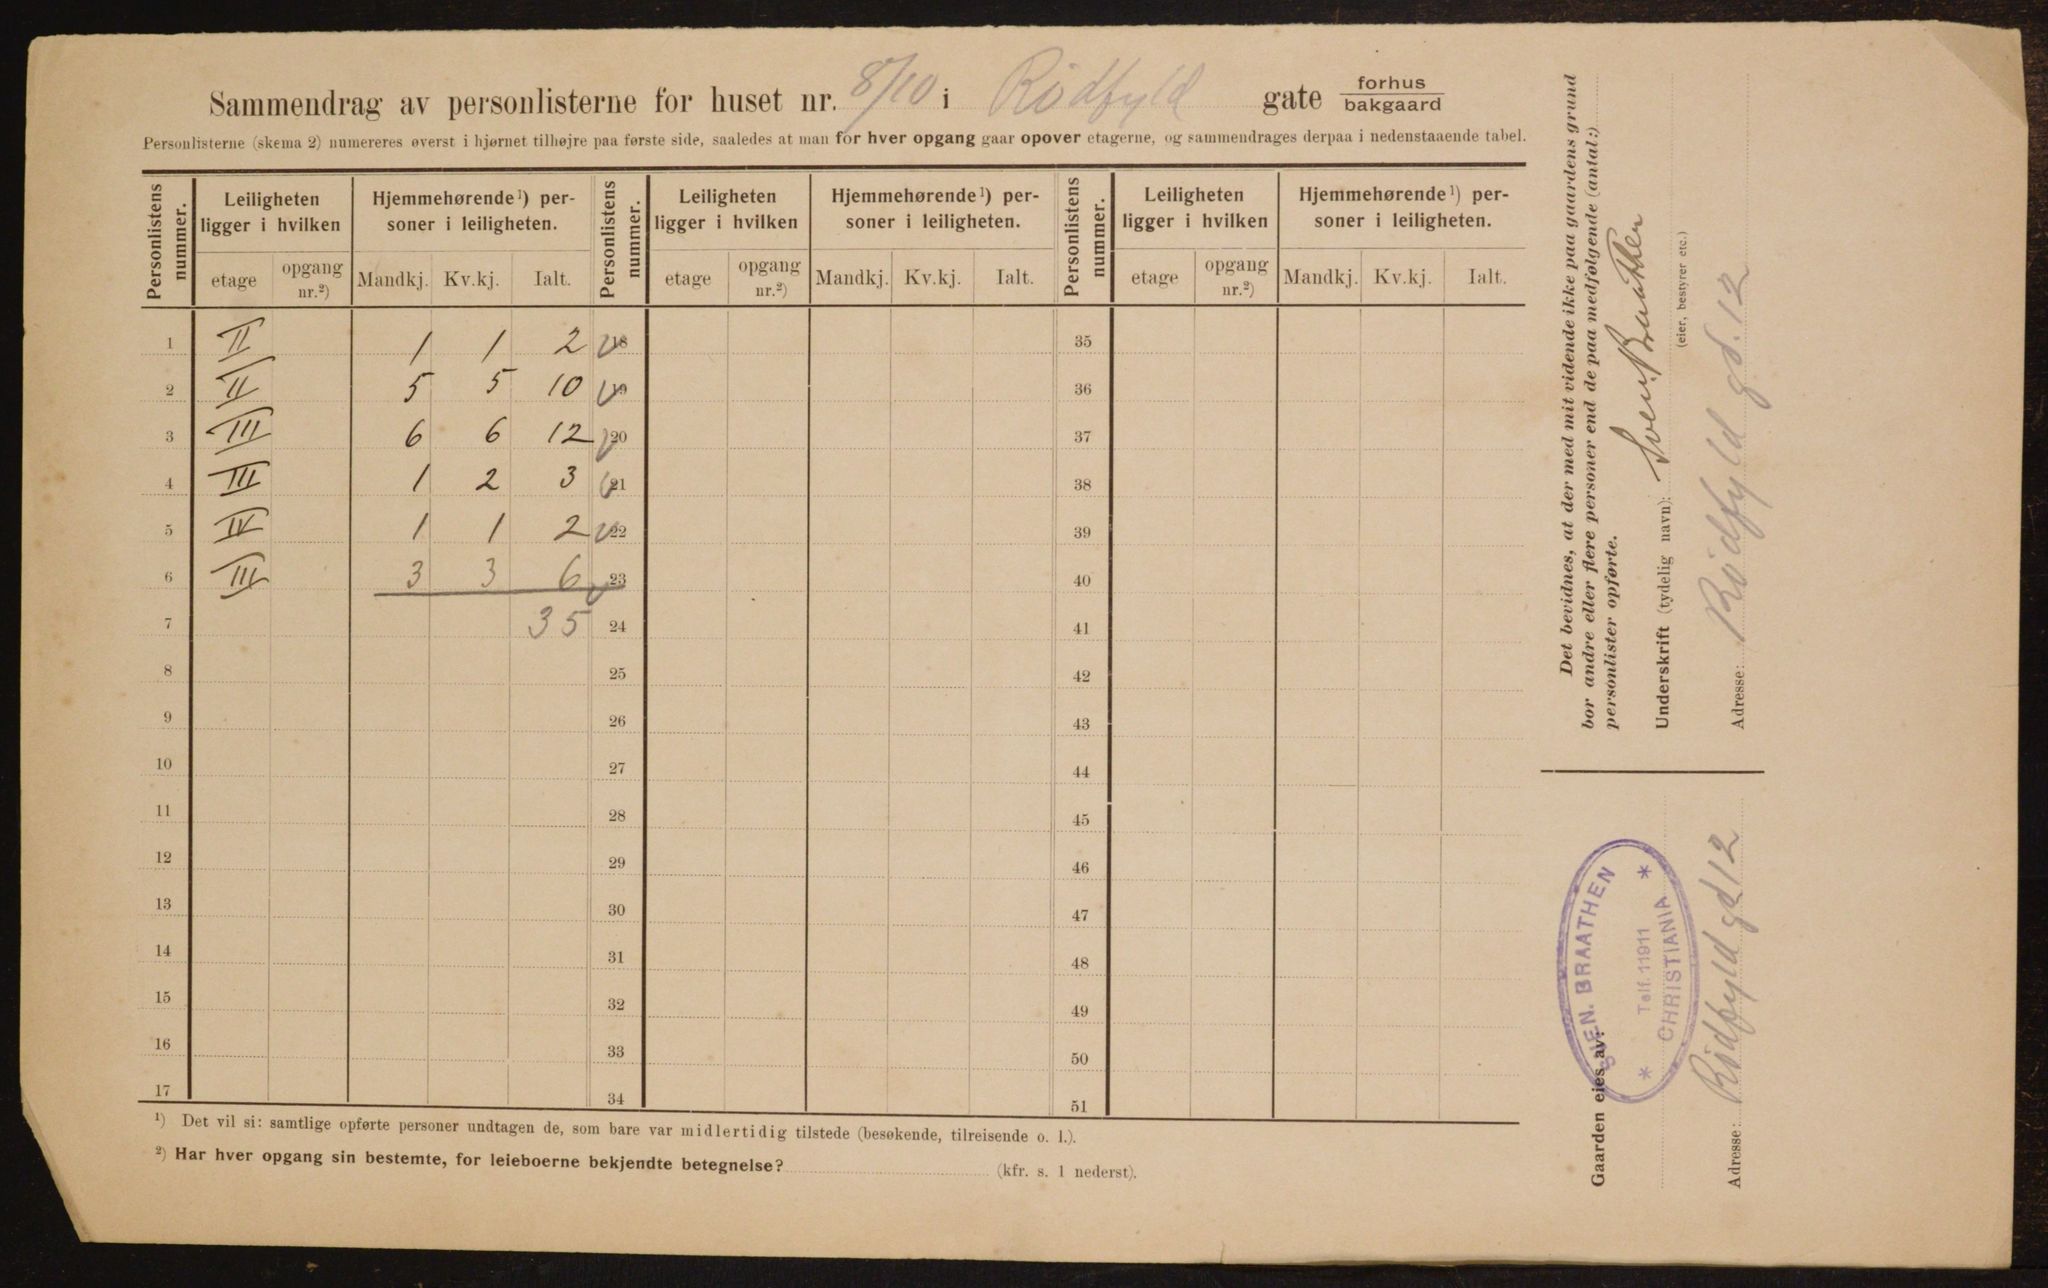 Sammendrag av personlisterne for huset nr. 8/10 i Rødfyld gate forhus
bakgaard
Personlisterne (skema 2) numereres øverst i hjørnet tilhøjre paa første side, saaledes at man for hver opgang gaar opover etagerne, og sammendrages derpaa i nedenstaaende tabel.
Personlistens nummer. Leiligheten ligger i hvilken Hjemmehørende¹) personer i leiligheten. Personlistens nummer. Leiligheten ligger i hvilken Hjemmehørende¹) personer i leiligheten. Personlistens nummer. Leiligheten ligger i hvilken Hjemmehørende¹) personer i leiligheten.
etage opgang nr.²) Mandkj. Kv.kj. Ialt. etage opgang nr.²) Mandkj. Kv.kj. Ialt. etage opgang nr.²) Mandkj. Kv.kj. Ialt.
1 II 1 1 2 18 35
2 II 5 5 10 19 36
3 III 6 6 12 20 37
4 III 1 2 3 21 38
5 IV 1 1 2 22 39
6 III 3 3 6 23 40
7 35 24 41
8 25 42
9 26 43
10 27 44
11 28 45
12 29 46
13 30 47
14 31 48
15 32 49
16 33 50
17 34 51
¹) Det vil si: samtlige opførte personer undtagen de, som bare var midlertidig tilstede (besøkende, tilreisende o. l.).
²) Har hver opgang sin bestemte, for leieboerne bekjendte betegnelse? (kfr. s. 1 nederst).
Det bevidnes, at der med mit vidende ikke paa gaardens grund
bor andre eller flere personer end de paa medfølgende (antal:)
personlister opførte.
Underskrift (tydelig navn): Sven. Braathen
(eier, bestyrer etc.)
Adresse: Rødfyld gd. 12
Gaarden eies av:
SVEN. BRAATHEN
Telf. 11911
* CHRISTIANIA *
Adresse: Rødfyld gd 12